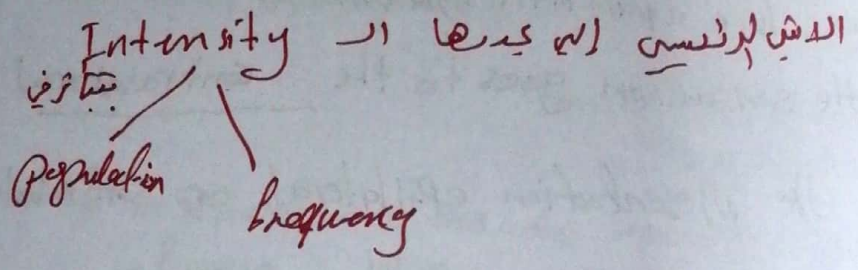 الاشي الرئيسي الي يحددها الـ Intensity
بتتأثر في
population
frequency